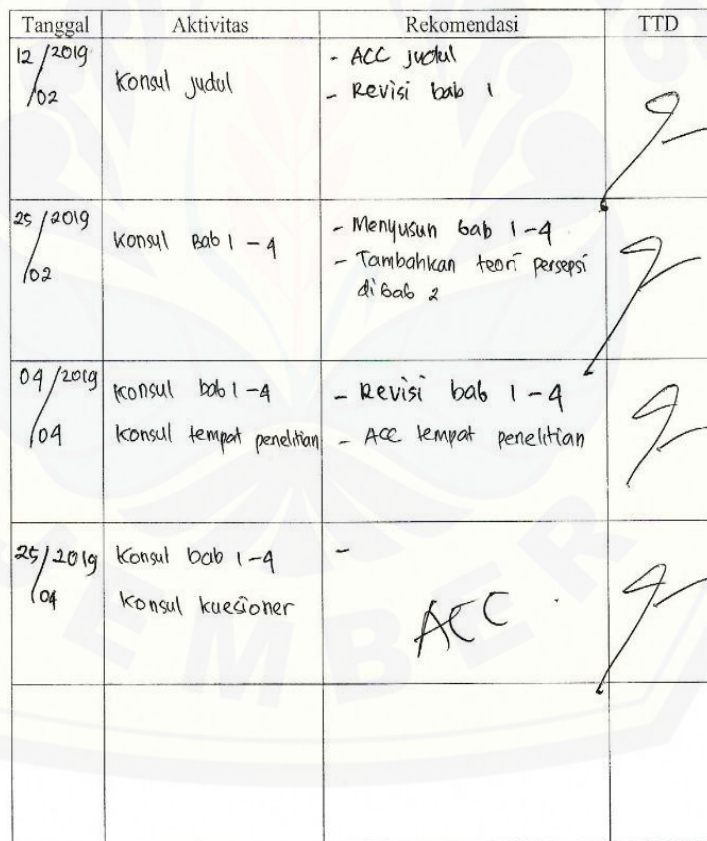 Tanggal Aktivitas Rekomendasi TTD
12/2019
/02
Konsul judul
- ACC judul
- Revisi bab 1
25/2019
/02
Konsul Bab 1 - 4
- Menyusun bab 1-4
- Tambahkan teori persepsi
di Bab 2
04/2019
/04
Konsul bab 1-4
Konsul tempat penelitian
- Revisi bab 1-4
- ACC tempat penelitian
25/2019
/04
Konsul bab 1-4
Konsul kuesioner
-
ACC
EMBER